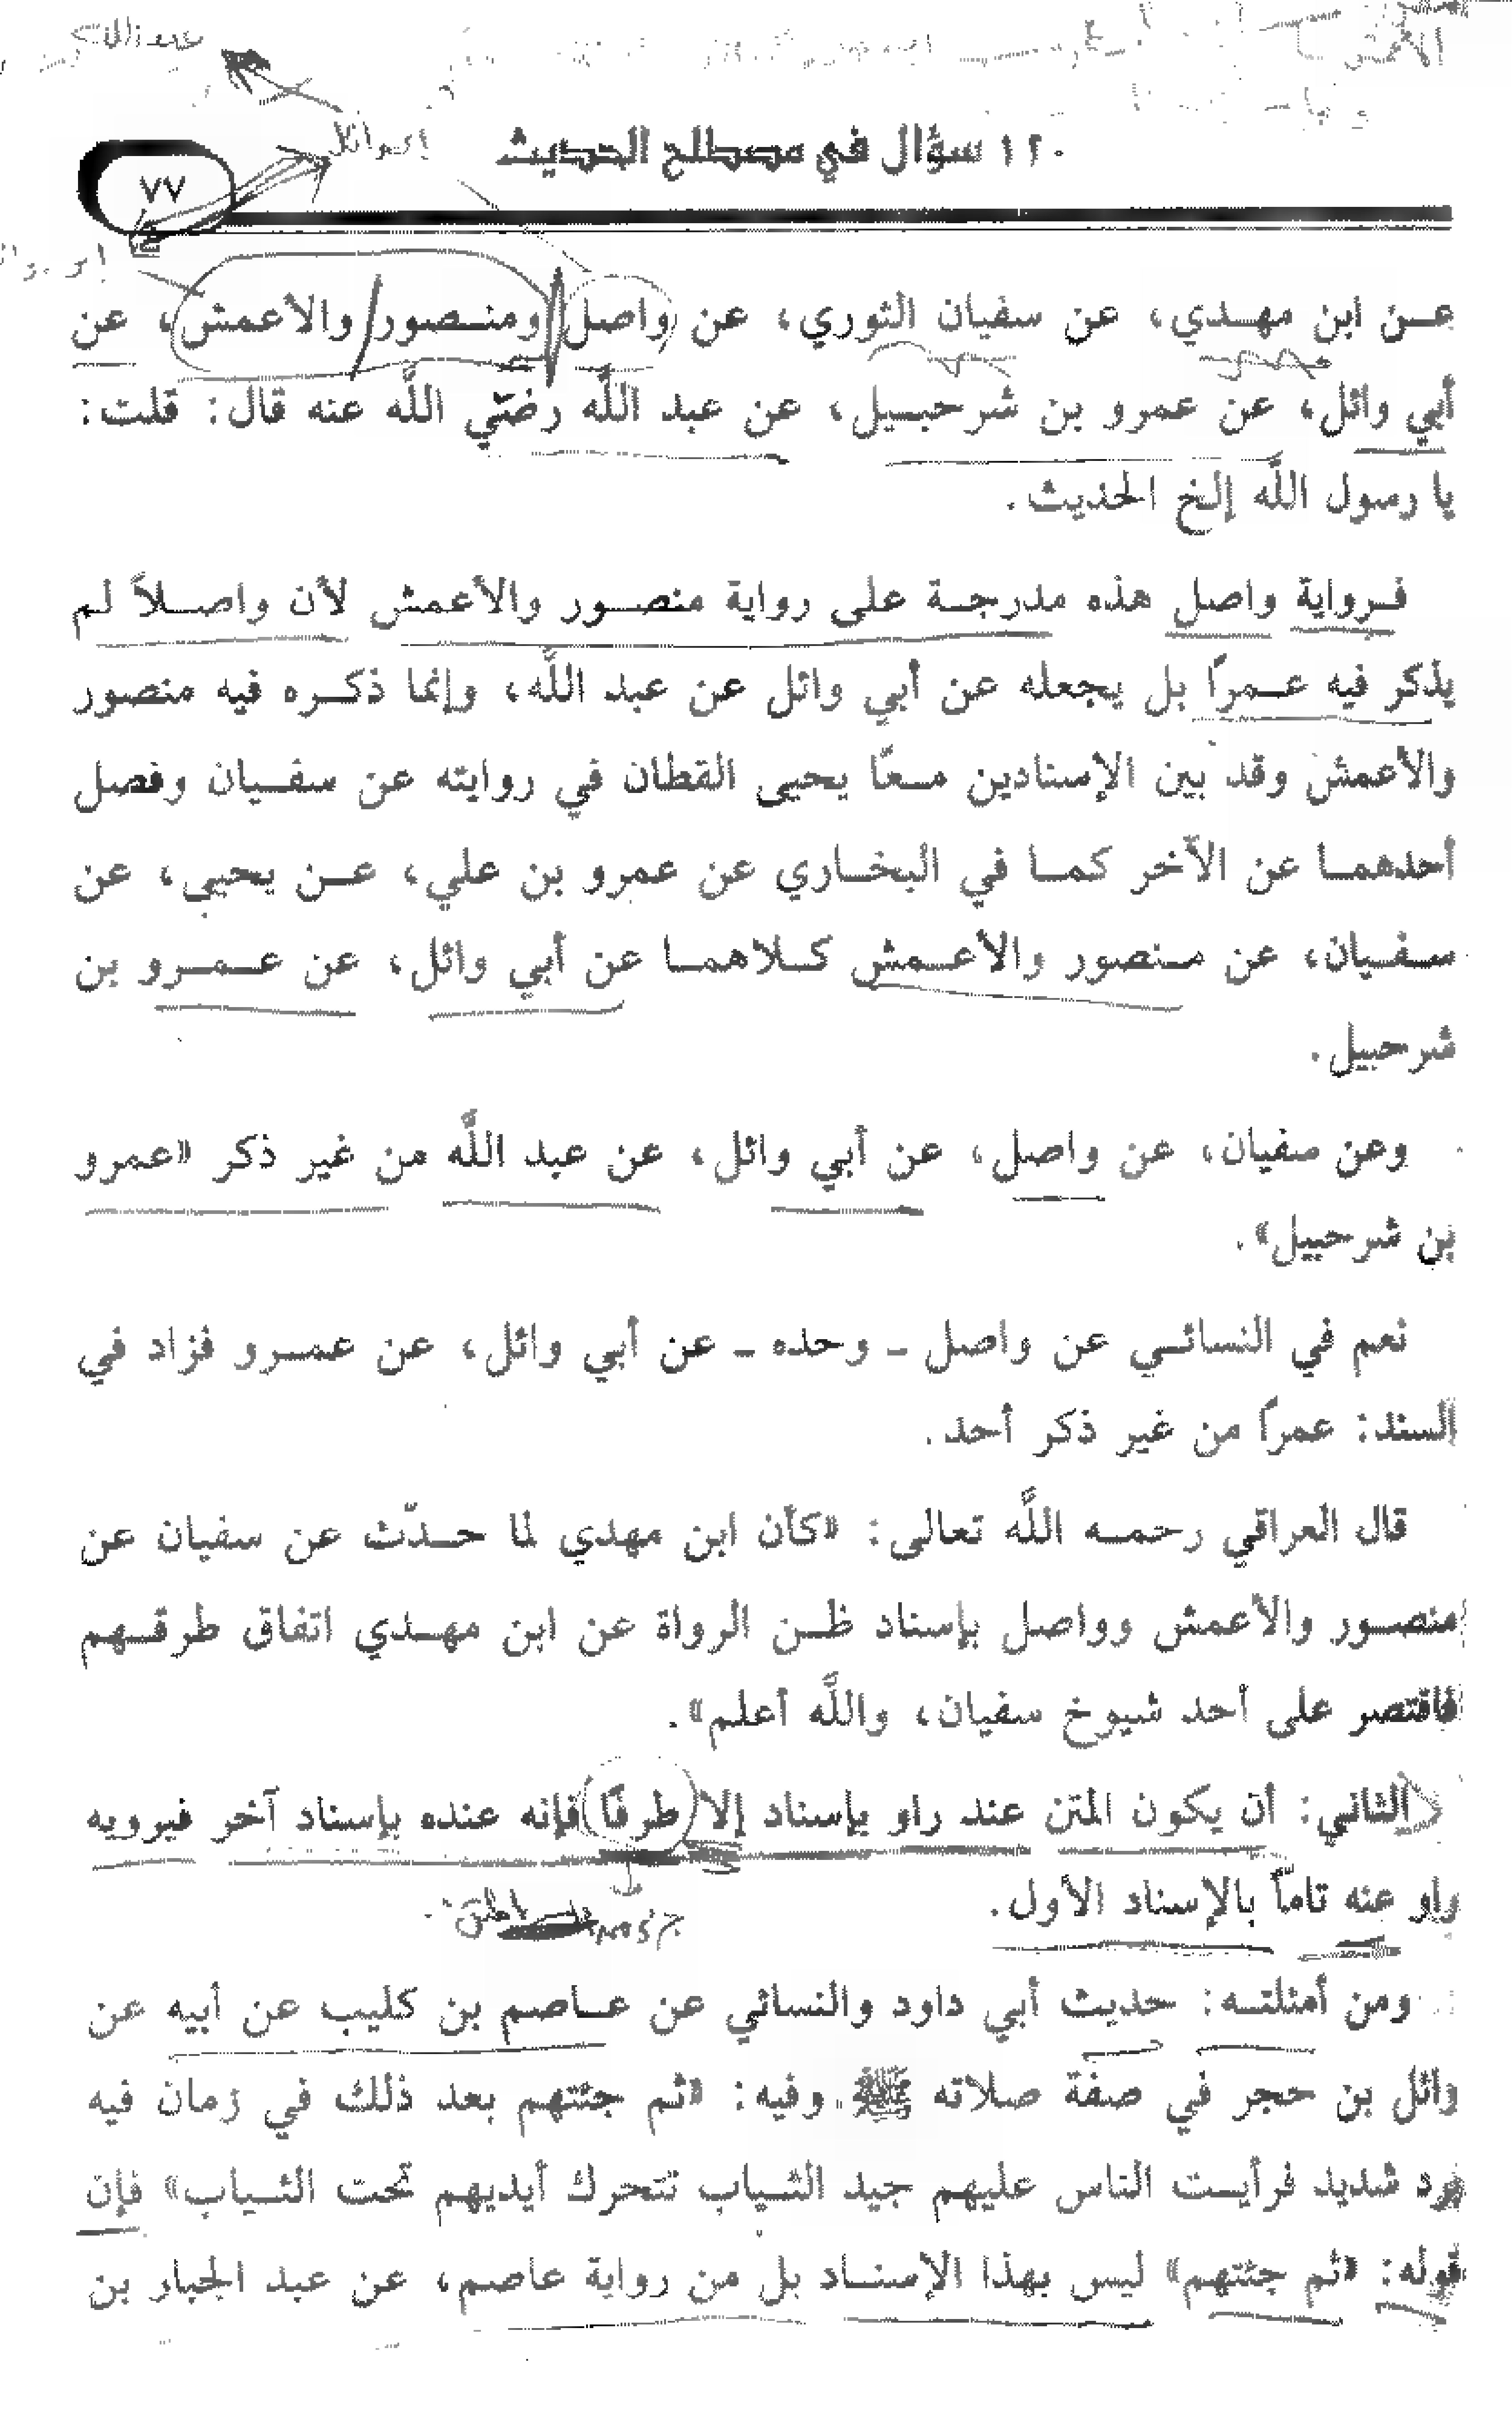 ١٢٠ سؤال في مصطلح الحديث
٧٧
عن ابن مهدي، عن سفيان الثوري، عن واصل ومنصور والأعمش، عن
أبي وائل، عن عمرو بن شرحبيل، عن عبد اللَّه رضي اللَّه عنه قال: قلت:
يا رسول اللَّه إلخ الحديث.
فرواية واصل هذه مدرجة على رواية منصور والأعمش لأن واصلاً لم
يذكر فيه عمراً بل يجعله عن أبي وائل عن عبد اللَّه، وإنما ذكره فيه منصور
والأعمش وقد بين الإسنادين معًا يحيى القطان في روايته عن سفيان وفصل
أحدهما عن الآخر كما في البخاري عن عمرو بن علي، عن يحيى، عن
سفيان، عن منصور والأعمش كلاهما عن أبي وائل، عن عمرو بن
شرحبيل.
وعن سفيان، عن واصل، عن أبي وائل، عن عبد اللَّه من غير ذكر «عمرو
بن شرحبيل».
نعم في النسائي عن واصل ـ وحده ـ عن أبي وائل، عن عمرو فزاد في
السند: عمراً من غير ذكر أحد.
قال العراقي رحمه اللَّه تعالى: «كأن ابن مهدي لما حدّث عن سفيان عن
منصور والأعمش وواصل بإسناد ظن الرواة عن ابن مهدي اتفاق طرقهم
فاقتصر على أحد شيوخ سفيان، واللَّه أعلم».
الثاني: أن يكون المتن عند راو بإسناد إلا طرفًا فإنه عنده بإسناد آخر فيرويه
راو عنه تاماً بالإسناد الأول.
ومن أمثلته: حديث أبي داود والنسائي عن عاصم بن كليب عن أبيه عن
وائل بن حجر في صفة صلاته ﷺ وفيه: «ثم جئتهم بعد ذلك في زمان فيه
برد شديد فرأيت الناس عليهم جيد الثياب تتحرك أيديهم تحت الثياب» فإن
قوله: «ثم جئتهم» ليس بهذا الإسناد بل من رواية عاصم، عن عبد الجبار بن